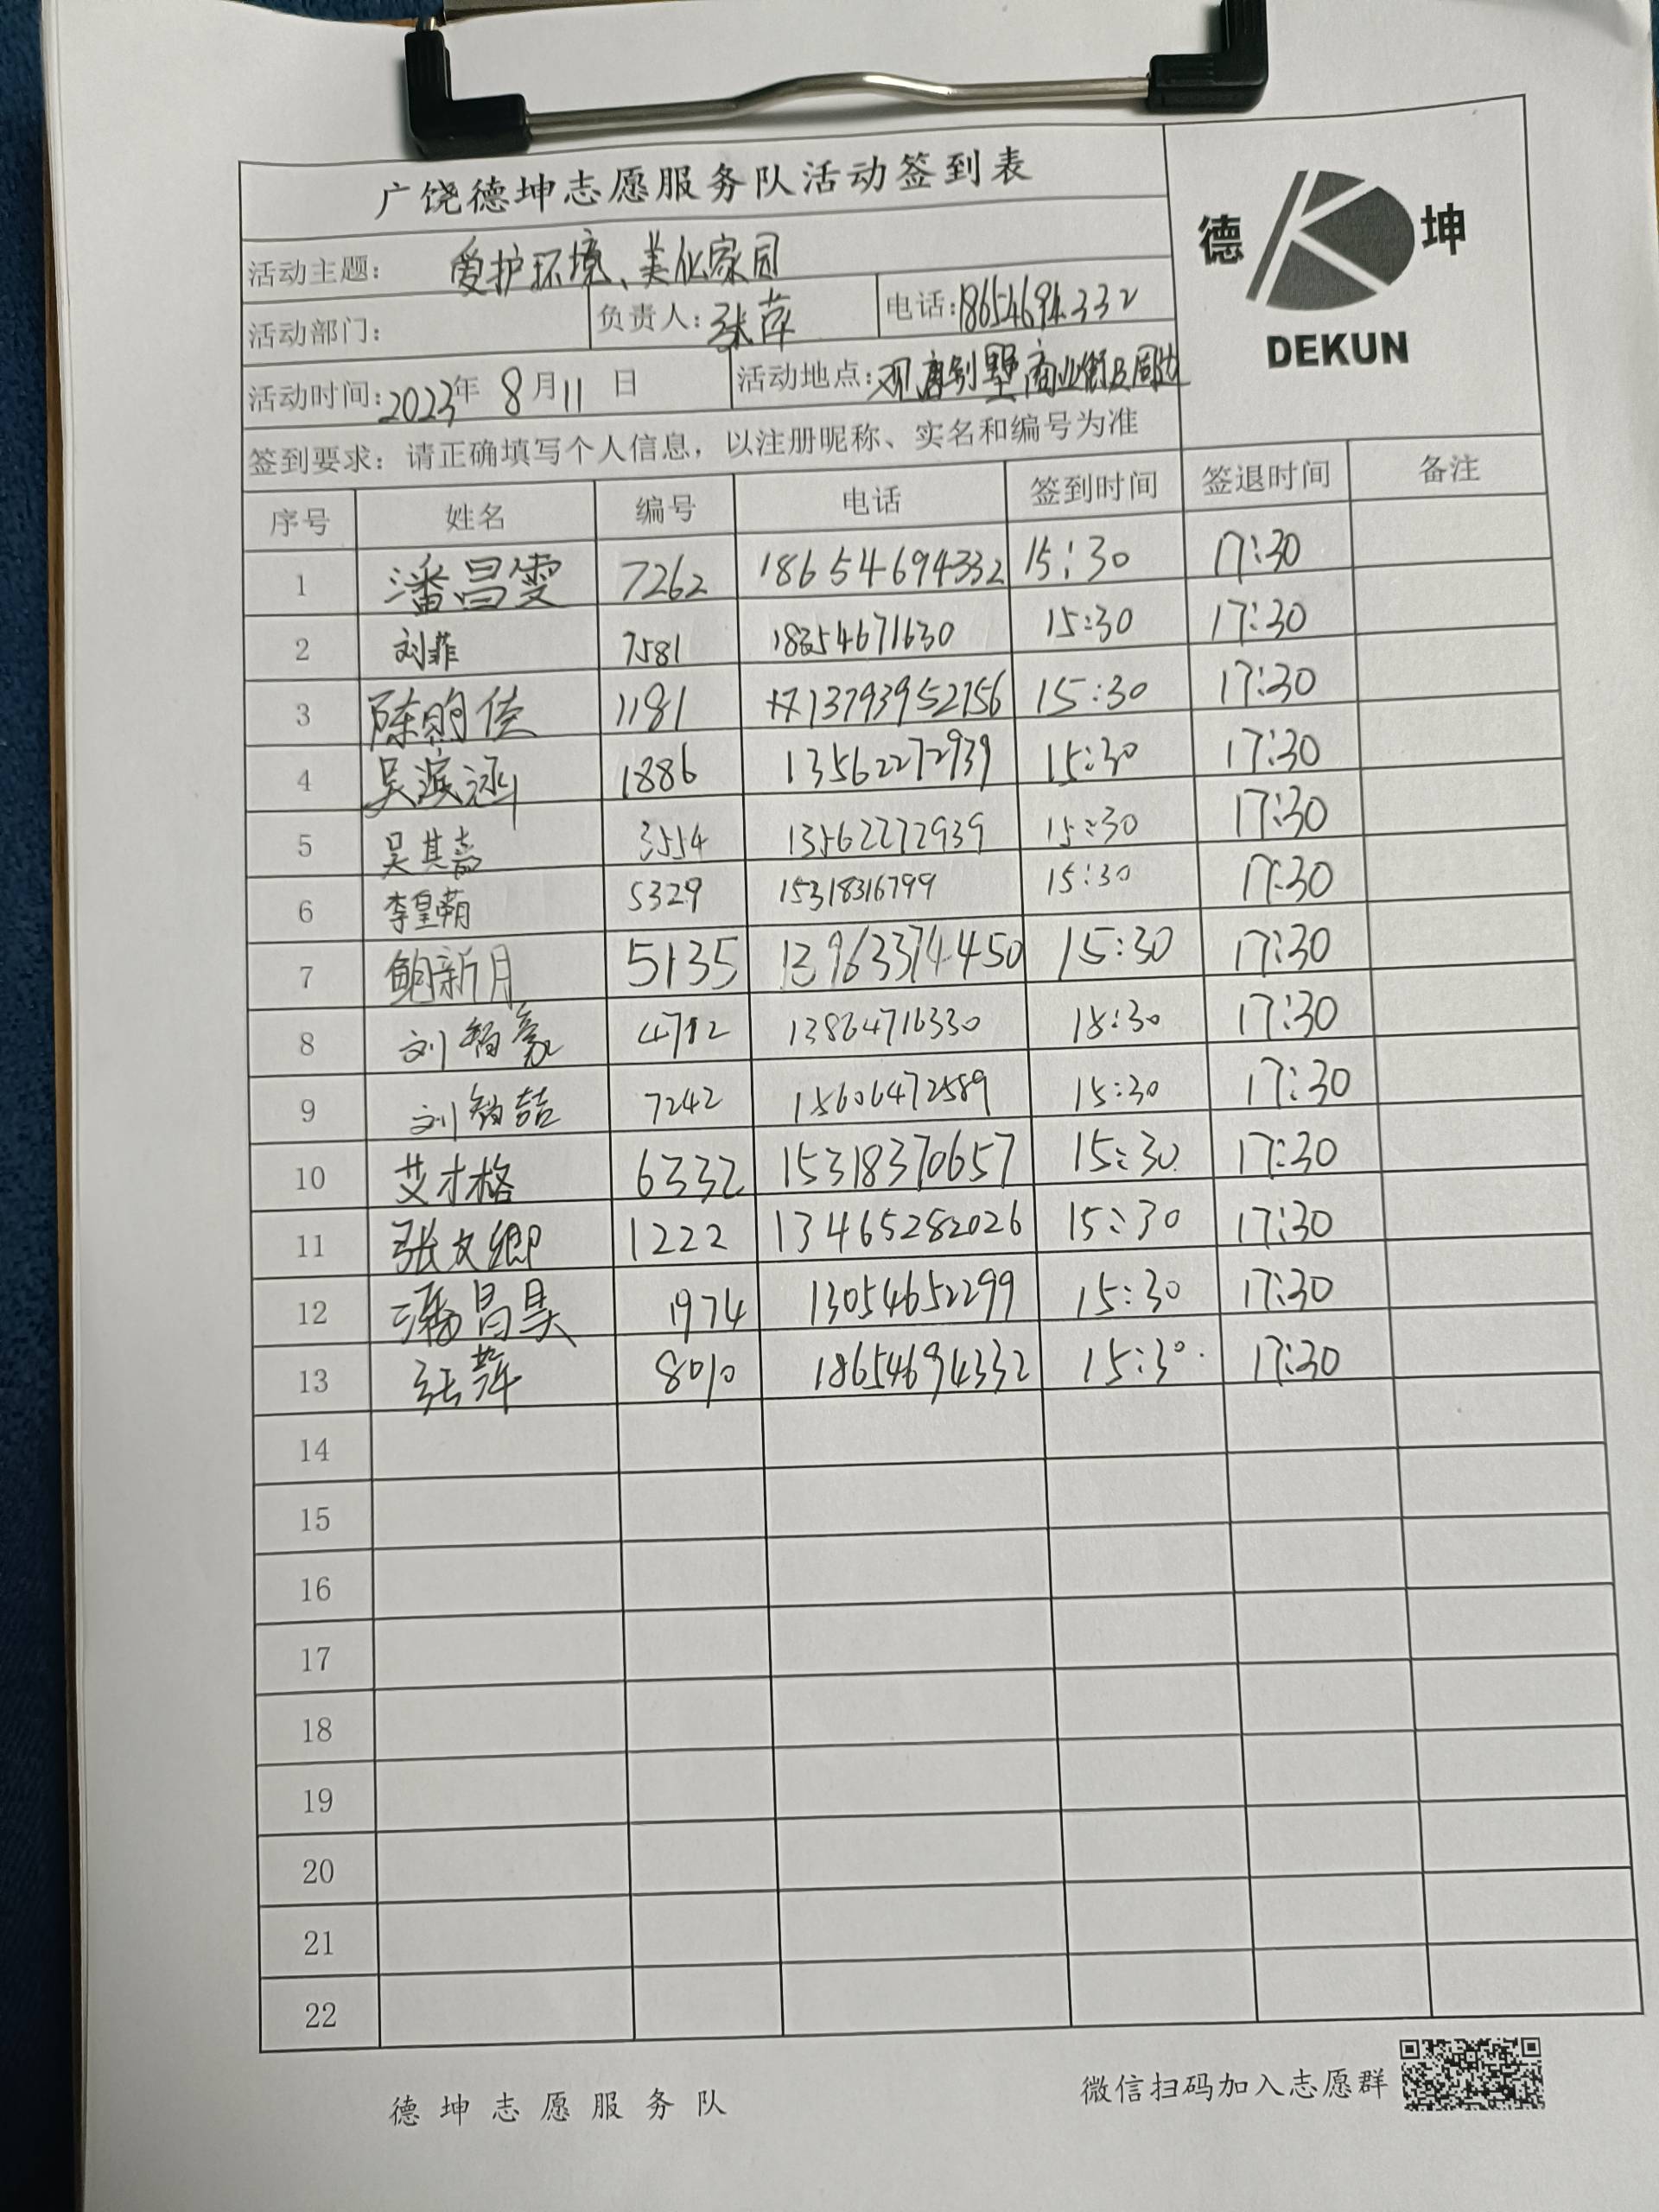 广饶德坤志愿服务队活动签到表
德 坤
DEKUN
活动主题： 爱护环境、美化家园
活动部门： 负责人：张萍 电话：18654694332
活动时间：2023年 8月11日 活动地点：观唐别墅商业街及周边
签到要求：请正确填写个人信息，以注册昵称、实名和编号为准
序号 姓名 编号 电话 签到时间 签退时间 备注
1 潘昌雯 7262 18654694332 15:30 17:30
2 刘菲 7581 18354671630 15:30 17:30
3 陈明佳 1181 13793952756 15:30 17:30
4 吴滨涵 1886 13562272939 15:30 17:30
5 吴其 3554 13562272939 15:30 17:30
6 李皇 5329 15318316799 15:30 17:30
7 鲍新月 5135 13963374450 15:30 17:30
8 刘智豪 4712 13864716330 15:30 17:30
9 刘智喆 7242 15606472589 15:30 17:30
10 艾才格 6332 15318370657 15:30 17:30
11 张文卿 1222 13465282026 15:30 17:30
12 潘昌昊 1974 13054652299 15:30 17:30
13 张萍 8010 18654694332 15:30 17:30
14
15
16
17
18
19
20
21
22
德坤志愿服务队 微信扫码加入志愿群